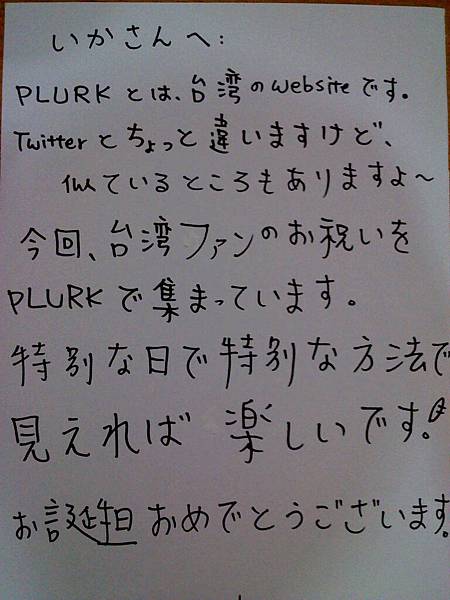 いかさんへ:
PLURKとは、台湾のwebsiteです。
Twitterとちょっと違いますけど、
似ているところもありますよ～
今回、台湾ファンのお祝いを
PLURKで集まっています。
特別な日で特別な方法で
見えれば楽しいです。
お誕生日おめでとうございます。